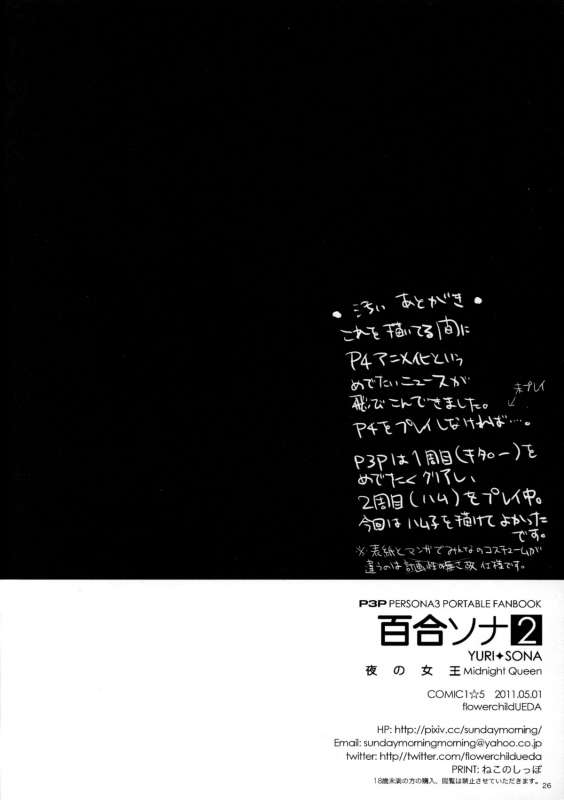 ・汚い あとがき・
これを描いてる間に
P4アニメ化という
めでたいニュースが
飛びこんできました。
未プレイ
P4をプレイしなければ…。
P3Pは1周目(キタロー)を
めでたくクリアし、
2周目(ハム)をプレイ中。
今回はハム子を描けてよかった
です。
※表紙とマンガでみんなのコスチュームが
違うのは計画性の無さ故 仕様です。
P3P PERSONA3 PORTABLE FANBOOK
百合ソナ2
YURI✦SONA
夜の女王 Midnight Queen
COMIC1☆5 2011.05.01
flowerchildUEDA
HP: http://pixiv.cc/sundaymorning/
Email: sundaymorningmorning@yahoo.co.jp
twitter: http://twitter.com/flowerchildueda
PRINT: ねこのしっぽ
18歳未満の方の購入、閲覧は禁止させていただきます。
26